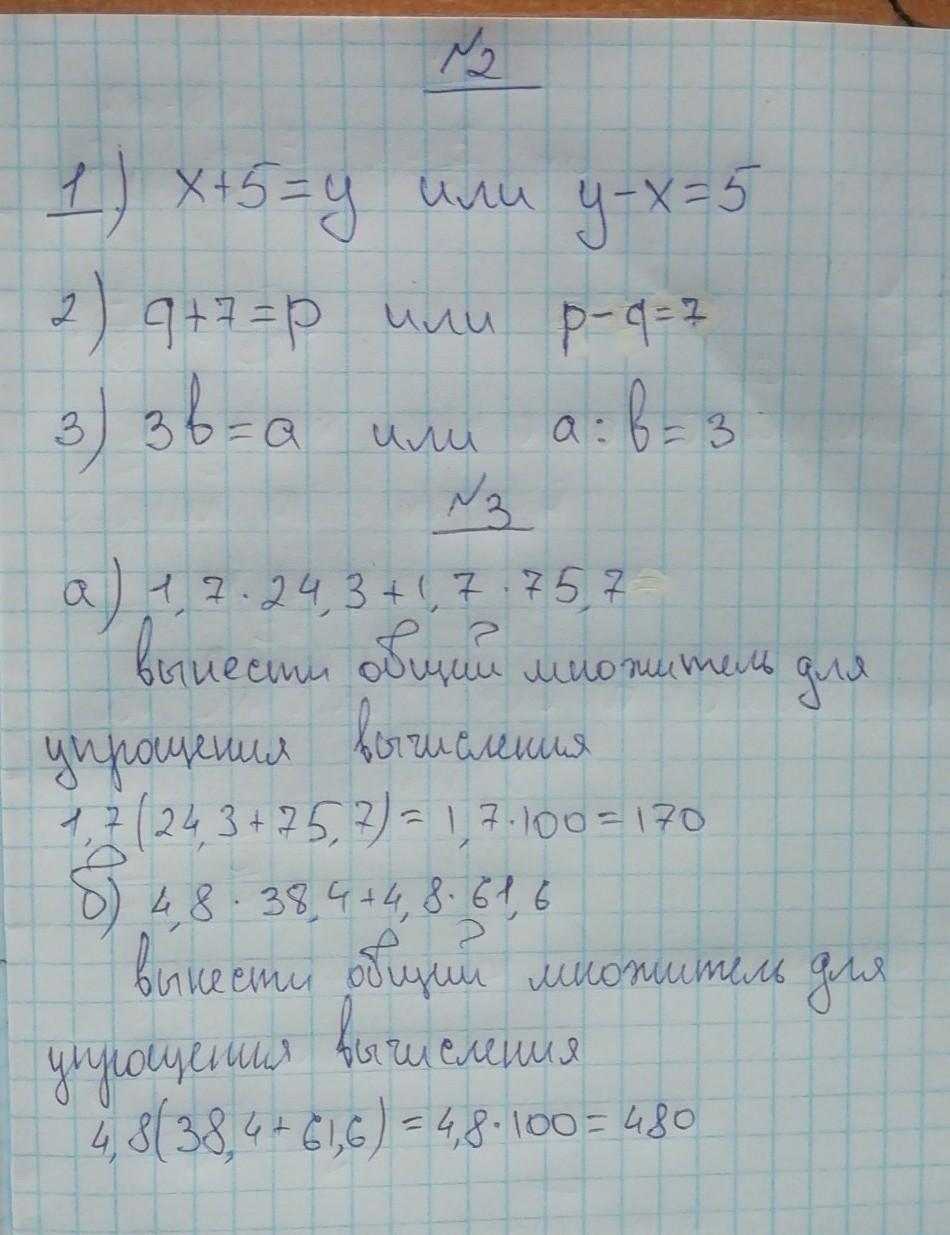 №2
1) x+5=y или y-x=5
2) q+7=p или p-q=7
3) 3b=a или a:b=3
№3
а) 1,7·24,3+1,7·75,7
вынести общий множитель для
упрощения вычисления
1,7(24,3+75,7)=1,7·100=170
б) 4,8·38,4+4,8·61,6
вынести общий множитель для
упрощения вычисления
4,8(38,4+61,6)=4,8·100=480